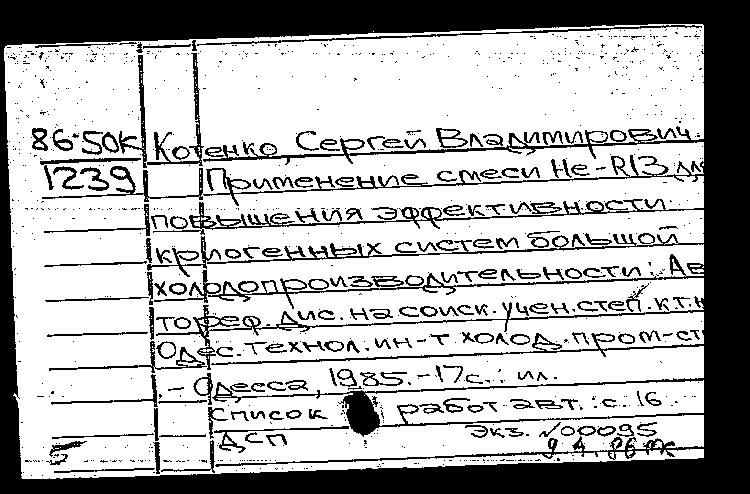 86-50К Котенко, Сергей Владимирович.
1239 Применение смеси Не-R13 для
повышения эффективности
криогенных систем большой
холодопроизводительности: Ав
тореф. дис. на соиск. учен. степ. к.т.н
Одес. технол. ин-т холод. пром-сти
.- Одесса, 1985.-17с.: ил.
Список работ авт.: с. 16.
ДСП Экз. №00095